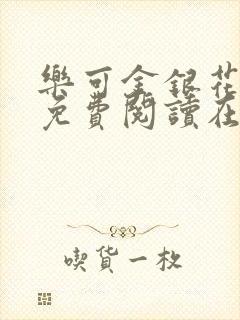 樂可金銀花
免費閱讀在
喫貨一枚